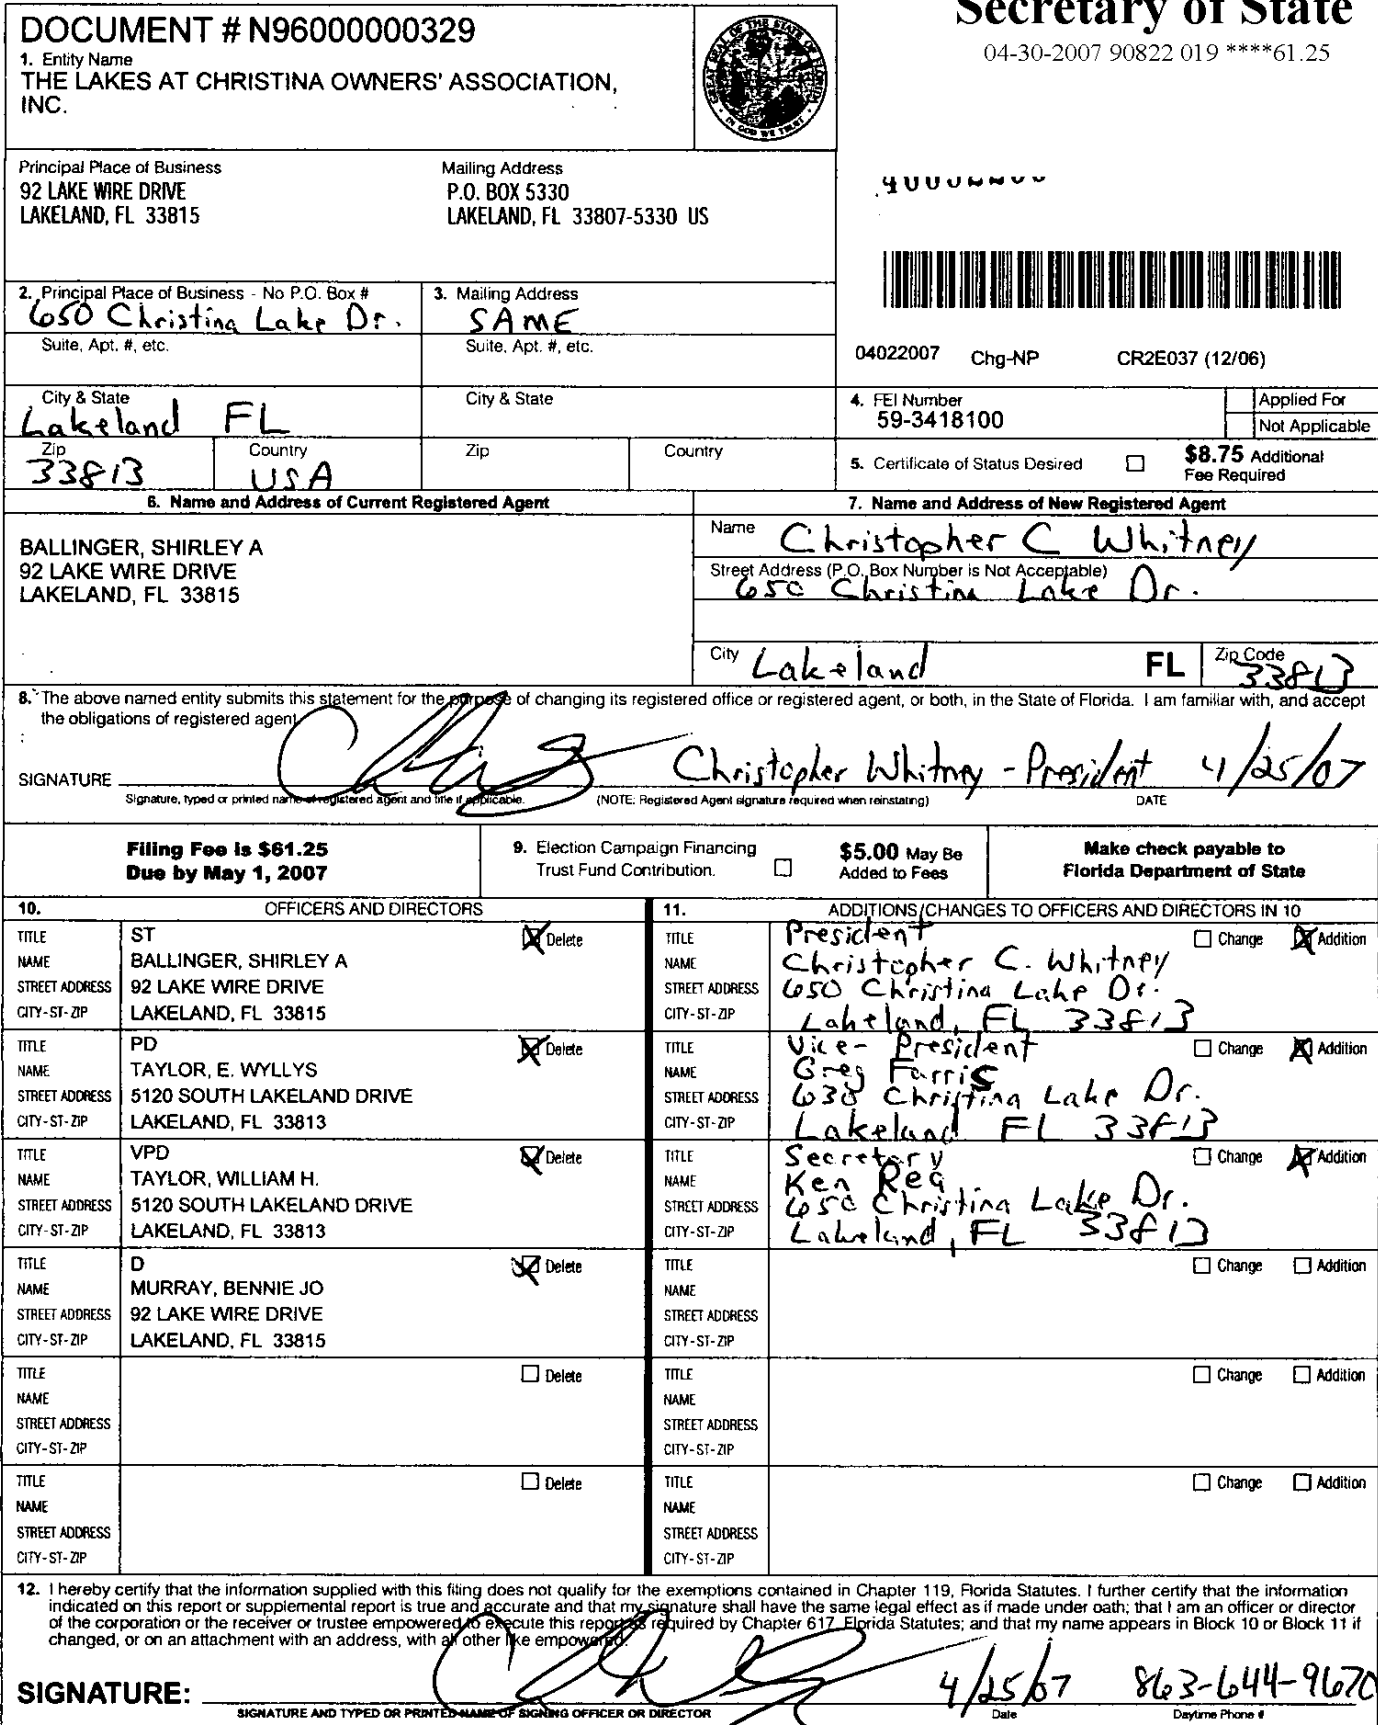 Secretary of State
04-30-2007 90822 019 ****61.25
DOCUMENT # N96000000329
1. Entity Name
THE LAKES AT CHRISTINA OWNERS' ASSOCIATION,
INC.
Principal Place of Business
92 LAKE WIRE DRIVE
LAKELAND, FL 33815
Mailing Address
P.O. BOX 5330
LAKELAND, FL 33807-5330 US
2. Principal Place of Business - No P.O. Box #
650 Christina Lake Dr.
3. Mailing Address
SAME
Suite, Apt. #, etc.
Suite, Apt. #, etc.
04022007 Chg-NP CR2E037 (12/06)
City & State
Lakeland FL
City & State
Zip
33813
Country
USA
Zip
Country
4. FEI Number
59-3418100
Applied For
Not Applicable
5. Certificate of Status Desired
$8.75 Additional
Fee Required
6. Name and Address of Current Registered Agent
BALLINGER, SHIRLEY A
92 LAKE WIRE DRIVE
LAKELAND, FL 33815
7. Name and Address of New Registered Agent
Name Christopher C Whitney
Street Address (P.O. Box Number is Not Acceptable)
650 Christina Lake Dr.
City Lakeland FL Zip Code 33813
8. The above named entity submits this statement for the purpose of changing its registered office or registered agent, or both, in the State of Florida. I am familiar with, and accept
the obligations of registered agent
SIGNATURE Christopher Whitney - President 4/25/07
Signature, typed or printed name of registered agent and title if applicable. (NOTE: Registered Agent signature required when reinstating) DATE
Filing Fee is $61.25
Due by May 1, 2007
9. Election Campaign Financing
Trust Fund Contribution.
$5.00 May Be
Added to Fees
Make check payable to
Florida Department of State
10. OFFICERS AND DIRECTORS
TITLE ST Delete
NAME BALLINGER, SHIRLEY A
STREET ADDRESS 92 LAKE WIRE DRIVE
CITY-ST-ZIP LAKELAND, FL 33815
TITLE PD Delete
NAME TAYLOR, E. WYLLYS
STREET ADDRESS 5120 SOUTH LAKELAND DRIVE
CITY-ST-ZIP LAKELAND, FL 33813
TITLE VPD Delete
NAME TAYLOR, WILLIAM H.
STREET ADDRESS 5120 SOUTH LAKELAND DRIVE
CITY-ST-ZIP LAKELAND, FL 33813
TITLE D Delete
NAME MURRAY, BENNIE JO
STREET ADDRESS 92 LAKE WIRE DRIVE
CITY-ST-ZIP LAKELAND, FL 33815
TITLE Delete
NAME
STREET ADDRESS
CITY-ST-ZIP
TITLE Delete
NAME
STREET ADDRESS
CITY-ST-ZIP
11. ADDITIONS/CHANGES TO OFFICERS AND DIRECTORS IN 10
TITLE President Change Addition
NAME Christopher C. Whitney
STREET ADDRESS 650 Christina Lake Dr.
CITY-ST-ZIP Lakeland, FL 33813
TITLE Vice-President Change Addition
NAME Greg Farris
STREET ADDRESS 638 Christina Lake Dr.
CITY-ST-ZIP Lakeland FL 33813
TITLE Secretary Change Addition
NAME Ken Rea
STREET ADDRESS 650 Christina Lake Dr.
CITY-ST-ZIP Lakeland, FL 33813
TITLE Change Addition
NAME
STREET ADDRESS
CITY-ST-ZIP
TITLE Change Addition
NAME
STREET ADDRESS
CITY-ST-ZIP
TITLE Change Addition
NAME
STREET ADDRESS
CITY-ST-ZIP
12. I hereby certify that the information supplied with this filing does not qualify for the exemptions contained in Chapter 119, Florida Statutes. I further certify that the information
indicated on this report or supplemental report is true and accurate and that my signature shall have the same legal effect as if made under oath; that I am an officer or director
of the corporation or the receiver or trustee empowered to execute this report as required by Chapter 617, Florida Statutes; and that my name appears in Block 10 or Block 11 if
changed, or on an attachment with an address, with all other like empowered.
SIGNATURE: 4/25/07 863-644-9670
SIGNATURE AND TYPED OR PRINTED NAME OF SIGNING OFFICER OR DIRECTOR Date Daytime Phone #